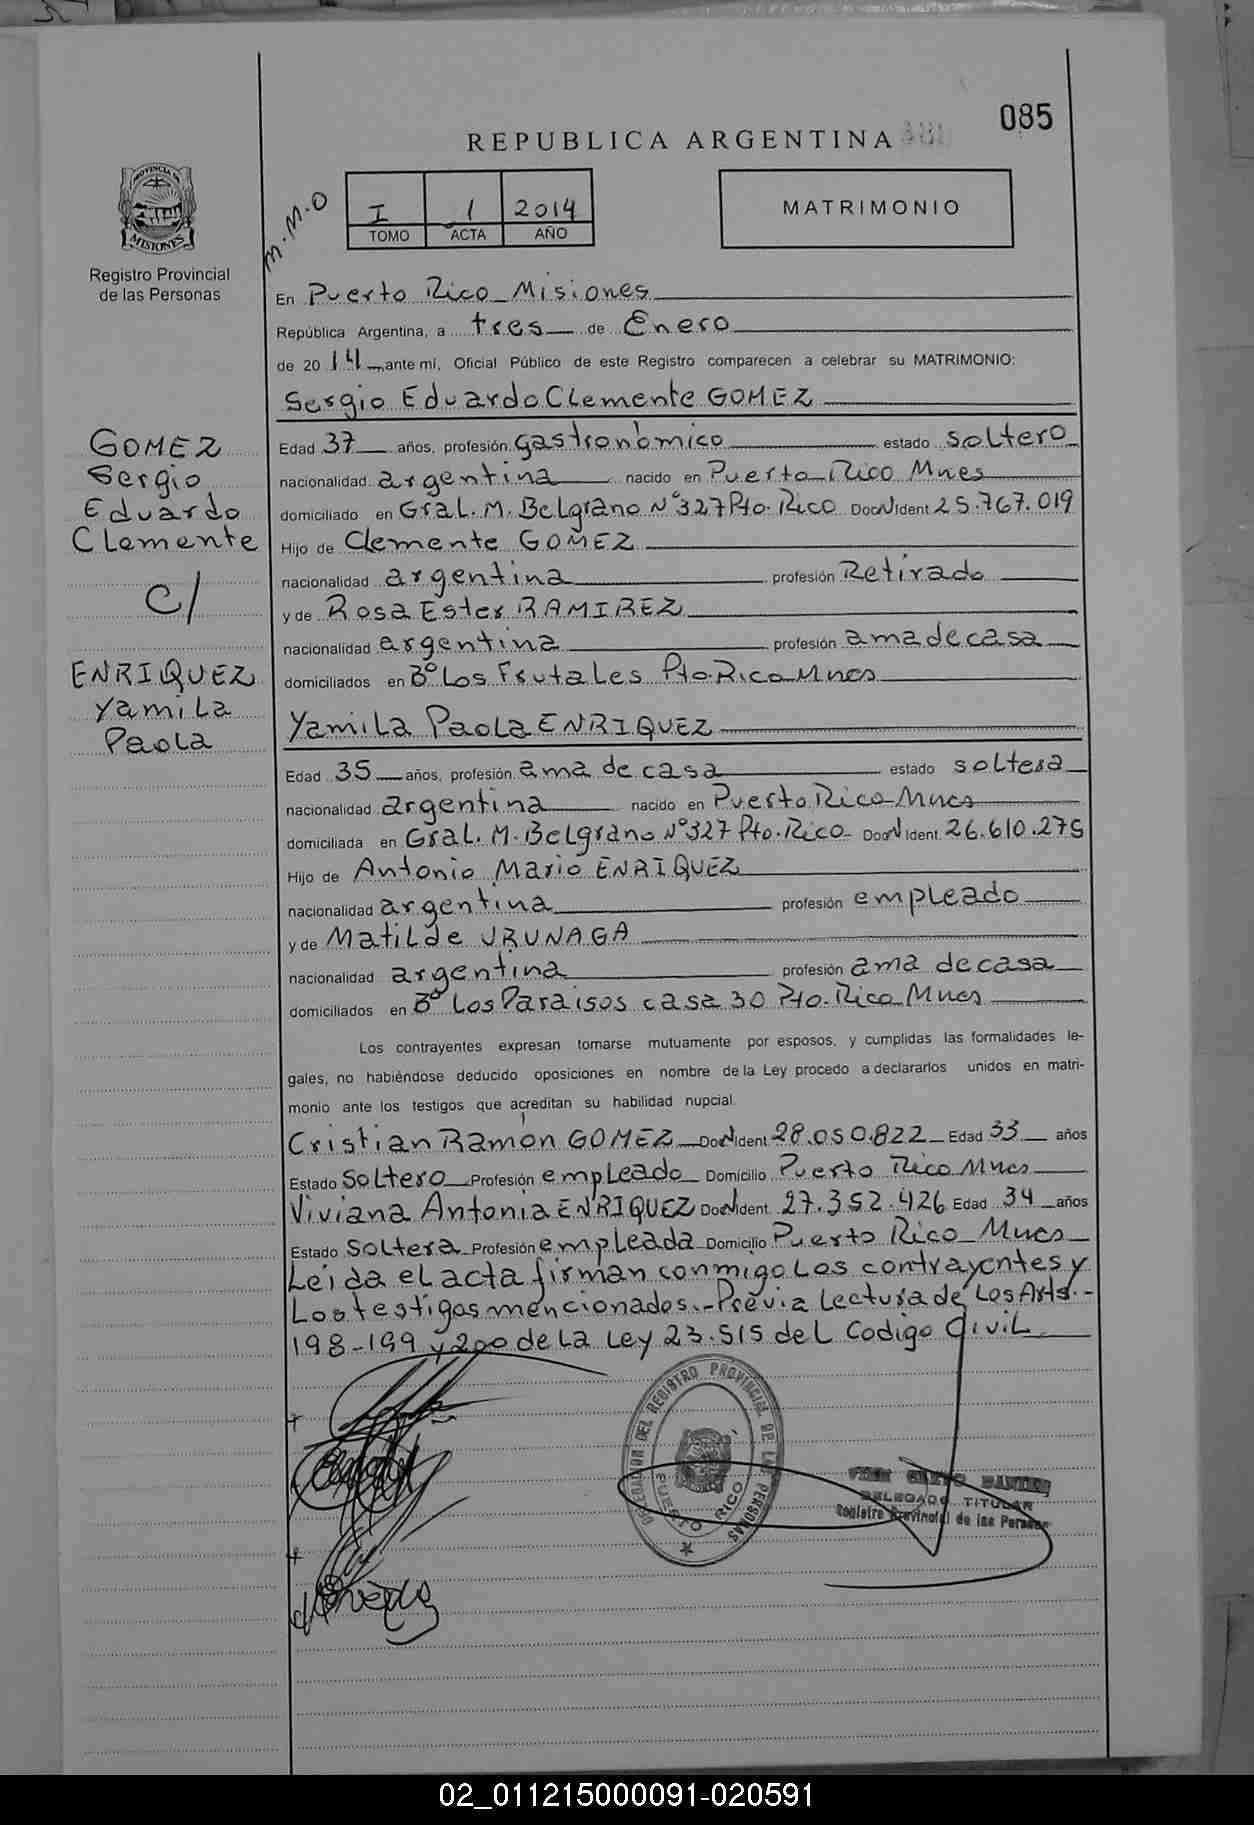 085
REPUBLICA ARGENTINA
PROVINCIA DE
MISIONES
Registro Provincial
de las Personas
M.M.O
I 1 2014
TOMO ACTA AÑO
MATRIMONIO
En Puerto Rico Misiones
República Argentina, a tres de Enero
de 2014 ante mí, Oficial Público de este Registro comparecen a celebrar su MATRIMONIO:
Sergio Eduardo Clemente GOMEZ
GOMEZ
Sergio
Eduardo
Clemente
c/
ENRIQUEZ
Yamila
Paola
Edad 37 años, profesión gastronómico estado soltero
nacionalidad argentina nacido en Puerto Rico Mnes
domiciliado en Gral. M. Belgrano N°327 Pto. Rico Doc. N Ident 25.767.019
Hijo de Clemente GOMEZ
nacionalidad argentina profesión Retirado
y de Rosa Ester RAMIREZ
nacionalidad argentina profesión ama de casa
domiciliados en B° Los Frutales Pto. Rico Mnes
Yamila Paola ENRIQUEZ
Edad 35 años, profesión ama de casa estado soltera
nacionalidad argentina nacido en Puerto Rico Mnes
domiciliada en Gral. M. Belgrano N°327 Pto. Rico Doc. N Ident. 26.610.275
Hijo de Antonio Mario ENRIQUEZ
nacionalidad argentina profesión empleado
y de Matilde URUNAGA
nacionalidad argentina profesión ama de casa
domiciliados en B° Los Paraisos casa 30 Pto. Rico Mnes
Los contrayentes expresan tomarse mutuamente por esposos, y cumplidas las formalidades le-
gales, no habiéndose deducido oposiciones en nombre de la Ley procedo a declararlos unidos en matri-
monio ante los testigos que acreditan su habilidad nupcial.
Cristian Ramón GOMEZ Doc. N Ident 28.050.822 Edad 33 años
Estado Soltero Profesión empleado Domicilio Puerto Rico Mnes
Viviana Antonia ENRIQUEZ Doc. N Ident. 27.352.426 Edad 34 años
Estado Soltera Profesión empleada Domicilio Puerto Rico Mnes
Leida el acta firman conmigo los contrayentes y
Los testigos mencionados.- Previa lectura de Los Arts.-
198-199 y 200 de la Ley 23.515 del Codigo Civil
DELEGACION DEL REGISTRO PROVINCIAL DE LAS PERSONAS
PUERTO RICO
DELEGADO TITULAR
Registro Provincial de las Personas
02_011215000091-020591